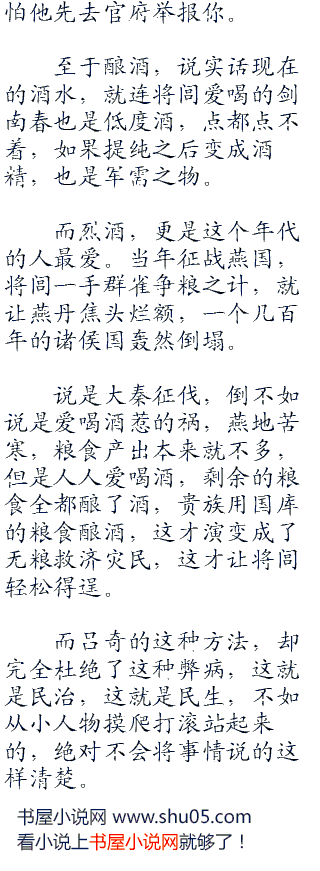 怕他先去官府举报你。
至于酿酒，说实话现在
的酒水，就连将闾爱喝的剑
南春也是低度酒，点都点不
着，如果提纯之后变成酒
精，也是军需之物。
而烈酒，更是这个年代
的人最爱。当年征战燕国，
将闾一手群雀争粮之计，就
让燕丹焦头烂额，一个几百
年的诸侯国轰然倒塌。
说是大秦征伐，倒不如
说是爱喝酒惹的祸，燕地苦
寒，粮食产出本来就不多，
但是人人爱喝酒，剩余的粮
食全都酿了酒，贵族用国库
的粮食酿酒，这才演变成了
无粮救济灾民，这才让将闾
轻松得逞。
而吕奇的这种方法，却
完全杜绝了这种弊病，这就
是民治，这就是民生，不如
从小人物摸爬打滚站起来
的，绝对不会将事情说的这
样清楚。
书屋小说网 www.shu05.com
看小说上书屋小说网就够了！